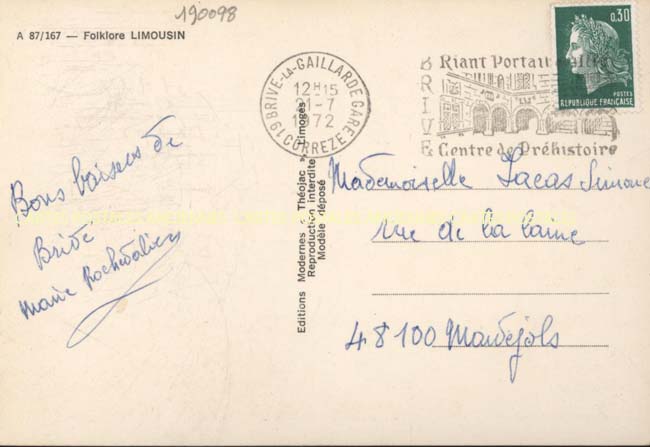 190098
A 87/167 — Folklore LIMOUSIN
19 BRIVE-LA-GAILLARDE GARE
12H15
21-7
1972
CORREZE
BRIVE
Riant Portail
Centre de Préhistoire
0.30
POSTES
REPUBLIQUE FRANÇAISE
Bons baisers de
Brive
Marie
Editions Modernes « Théojac » Limoges
Reproduction interdite
Modèle déposé
Mademoiselle Lacas Simone
rue de la
48100 Marvejols